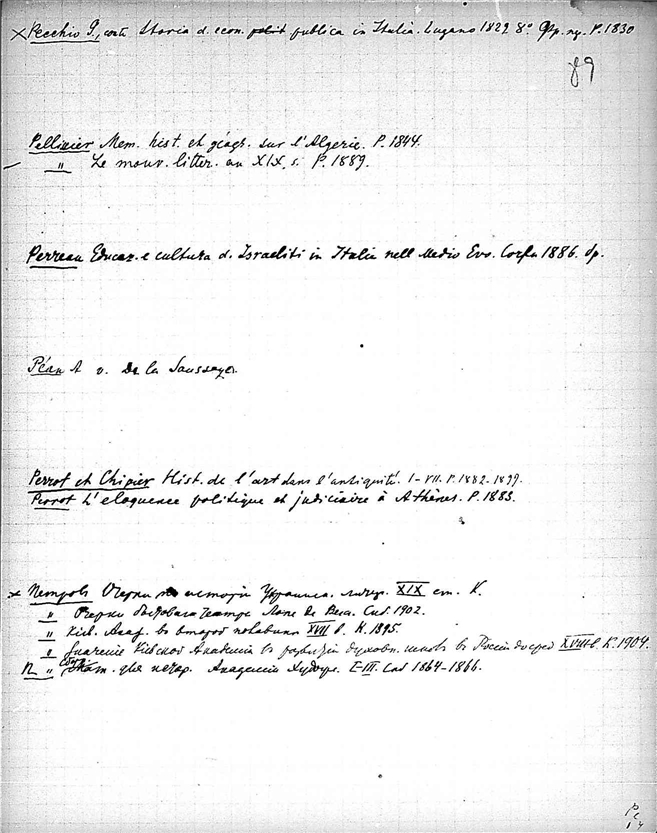 × Pecchio G., conte Storia d. econ. publica in Italia. Lugano 1829 8° P. 1830
89
Pellissier Mem. hist. et géogr. sur l'Algerie. P. 1844.
— " Le mouv. litter. au XIX s. P. 1889.
Perreau Educaz. e cultura d. Israeliti in Italia nell Medio Evo. Corfu 1886. op.
Péan A v. De la Saussaye.
Perrot et Chipiez Hist. de l'art dans l'antiquité. I–VII. P. 1882–1899.
Perrot L'eloquence politique et judiciaire à Athènes. P. 1883.
× Петровъ Очерки истор. Украинск. литер. XIX ст. К.
" Очерки бытоваго театра Лопе де Вега. Спб. 1902.
" Кіев. Акад. во второй половинѣ XVII в. К. 1895.
" Значеніе Кіевской Академіи въ развитіи духовн. школъ въ Россіи XVIII в. К. 1904.
П " для истор. Академіи Худож. I–III. Спб 1864–1866.